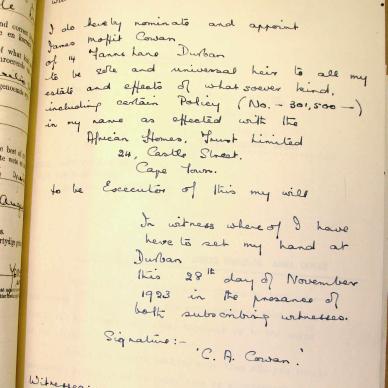 I do hereby nominate and appoint
James Moffit Cowan
of 14 Fanns Lane Durban
to be sole and universal heir to all my
estate and effects of whatsoever kind,
including certain Policy (No. - 301,500 -)
in my name as effected with the
African Homes, Trust Limited
24, Castle Street,
Cape Town.
to be Excecutor of this my will
In witness where of I have
here to set my hand at
Durban
this 28th day of November
1923 in the presance of
both subscribing witnesses.
Signature:-
'C. A. Cowan.'